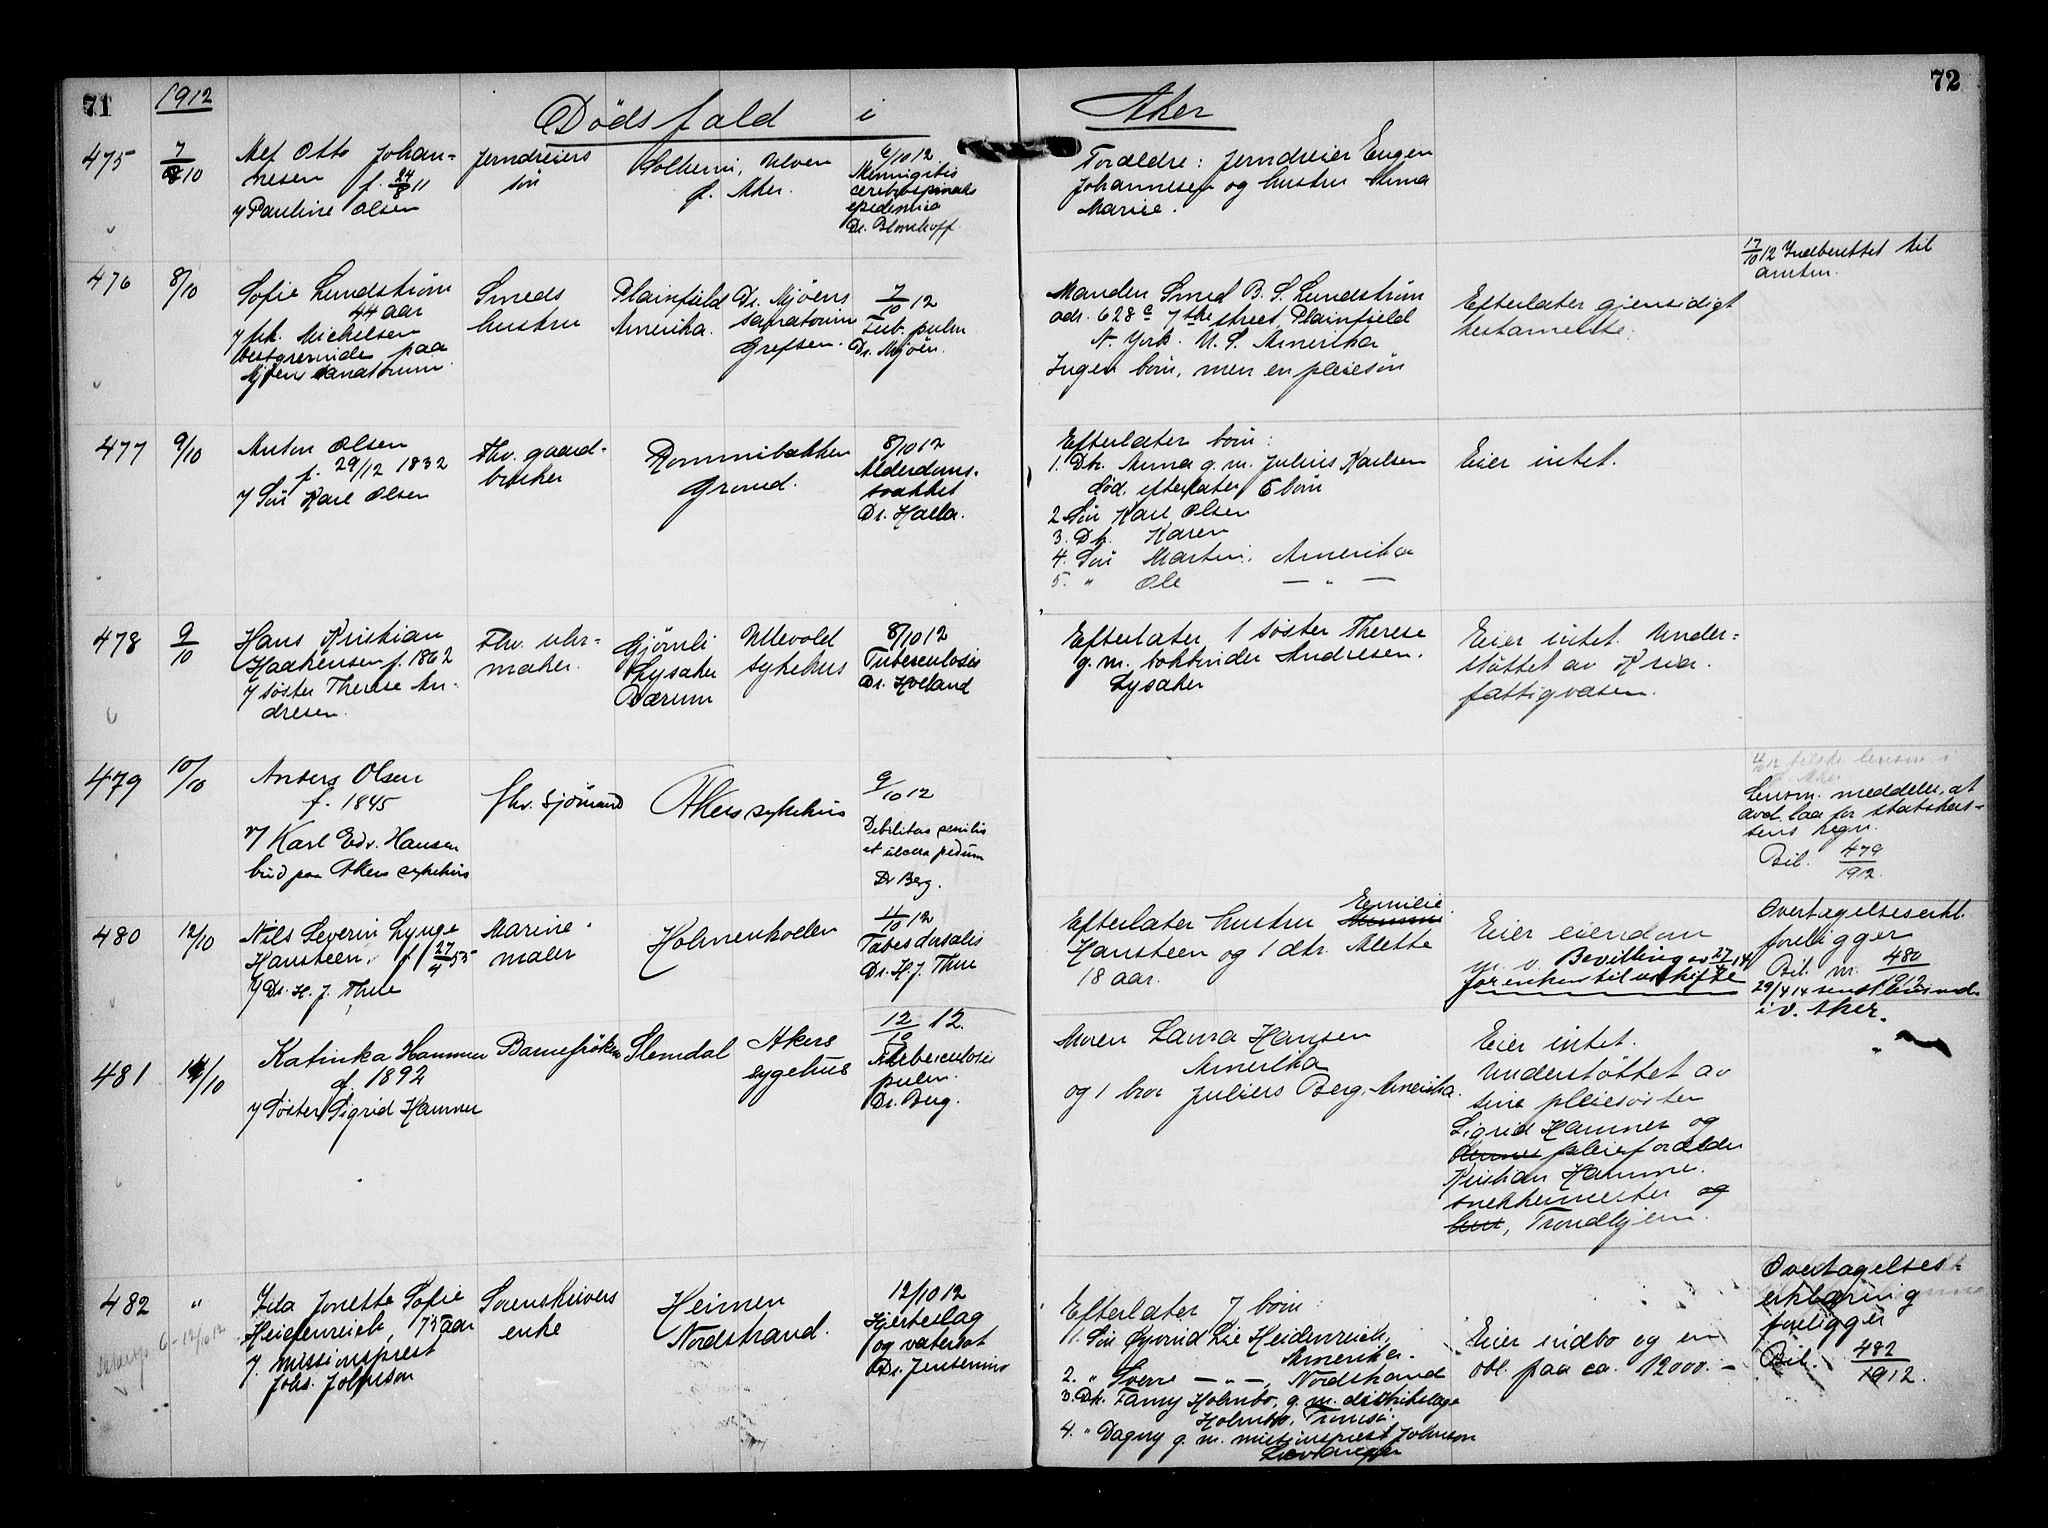 71
1912
Dödsfald i
Aker
72
475
7/10
Alf Otto Johan-
nesen f. 24/8 11
v/ Pauline Olsen
Jerndreiers
sön
Solheim, Ulven
Ø. Aker.
6/10 12
Meningitis
cerebrospinalis
epidemica
Dr. Blomhoff.
Foreldre: jerndreier Eugen
Johannesen og hustru Anna
Marie.
476
8/10
Sofie Lundström
44 aar
v/ frk. Mickelsen
bestyrerinde paa
Mjöens sanatorium
Smeds
hustru
Plainfield
Amerika.
Dr. Mjöens
sanatorium
Grefsen.
7/10 12
Tub. pulm.
Dr. Mjöen.
Manden Smed B. S. Lundström
adr. 628 E 7the street Plainfield
N. York. U. S. Amerika
Ingen börn, men en pleiesön
Efterlater gjensidigt
testamente.
17/10 12 Indberettet til
amtm.
477
9/10
Anton Olsen
f. 29/12 1832
v/ Sön Karl Olsen
Fhv. gaard-
bruker
Rommibakken
Grorud.
8/10 12
Alderdoms-
svakhet
Dr. Halla.
Efterlater börn:
1. Dtr. Anna g. m. Julius Karlsen
död, efterlater 5 börn
2. Sön Karl Olsen
3. Dtr. Karen
4. Sön Martin, Amerika
5. " Ole — " —
Eier intet.
478
9/10
Hans Kristian
Haakensen f. 1862
v/ söster Therese An-
dresen.
Fhv. uhr-
maker.
Gjönli
Lysaker
Bærum
Ullevold
sykehus
8/10 12
Tuberculosis
Dr. Hoeland
Efterlater 1 söster Therese
g. m. bokbinder Andresen.
Lysaker
Eier intet. Under-
stöttet av Kria.
fattigvæsen.
479
10/10
Anders Olsen
f. 1845
v/ Karl Edv. Hansen
bud paa Akers sykehus
fhv. sjömand
Akers sykehus
9/10 12
Debilitas senilis
et ulcera pedum
Dr Berg.
Lensm. meddeler, at
avd. laa for statskas-
sens regn.
Bil. 479/1912.
480
12/10
Nils Severin Lynge
Hansteen, f 27/4 55
v/ Dr. H. J. Thue
Marine-
maler
Holmenkollen
11/10 12
Tabes dorsalis
Dr. H. J. Thue
Efterlater hustru Emilie
Hansteen og 1 dtr. Alette
18 aar.
Eier eiendom
Bevilling av 27/4 14
for enken til uskiftet
Overtagelseserkl.
foreligger
Bil. nr. 480/1912
29/4 14 sendt lensmd.
i v. Aker.
481
14/10
Katinka Hammer
f. 1892
v/ Söster Sigrid Hammer
Barnefröken
Slemdal
Akers
sygehus
12/10 12.
Tuberculosis
pulm.
Dr. Berg.
Moren Laura Hansen
Amerika
og 1 bror Julius Berg, Amerika.
Eier intet.
Understöttet av
sine pleiesöster
Sigrid Hammer og
pleieforældre
Kristian Hammer.
snekkermester og
hus, Trondhjem.
482
"
Ida Jonette Sofie
Heidenreich, 73 aar
v. missionsprest
Johs. Johnson
Sorenskrivers
enke
Heimen
Nordstrand.
12/10 12
Hjerteslag
og vatersot
Dr. Jensenius
Efterlater 7 börn:
1. Sön Øyvind Lie Heidenreich,
Amerika.
2. " Sverre — " —, Nordstrand
3. Dtr. Fanny Holmbo, g. m. distriktslæge
Holmbo, Tromsö.
4. " Dagny g. m. missionsprest Johnson
Levanger
Eier indbo og en
obl. paa ca. 12000.–
Overtagelses-
erklæring
foreligger
Bil. 482/1912.